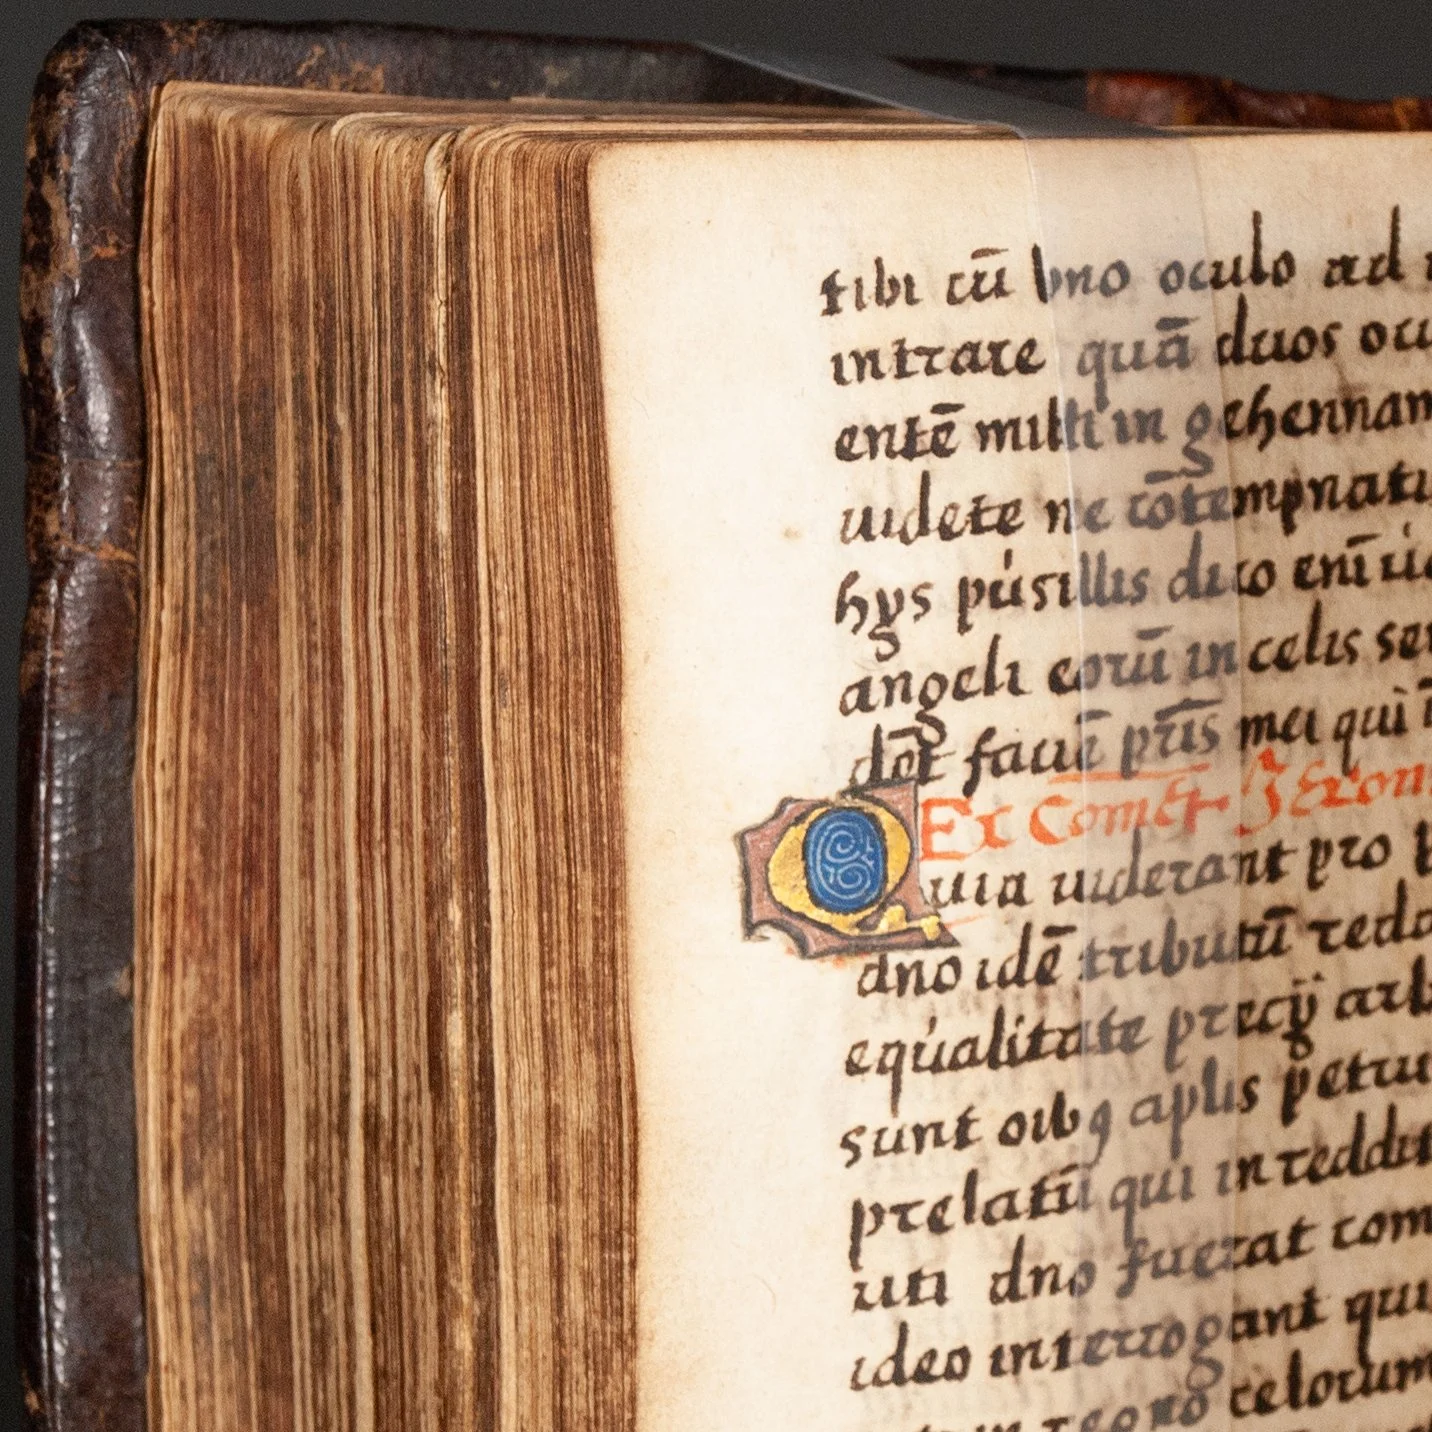 tibi cū vno oculo ad
intrare quā duos ocu
entē mitti in gehennam
uidete ne cōtempnatis
hys pusillis dico enī
angeli eorū in celis sem
dēt faciē pr̄is mei qui
Ex Com̄et Jeroni
Quia uiderant pro
dno idē tributū redd
equalitate precij arb
sunt oībꝯ aplis petru
prelatū qui in redditi
uti dno fuerat com
ideo interrogant qui
regno celorum